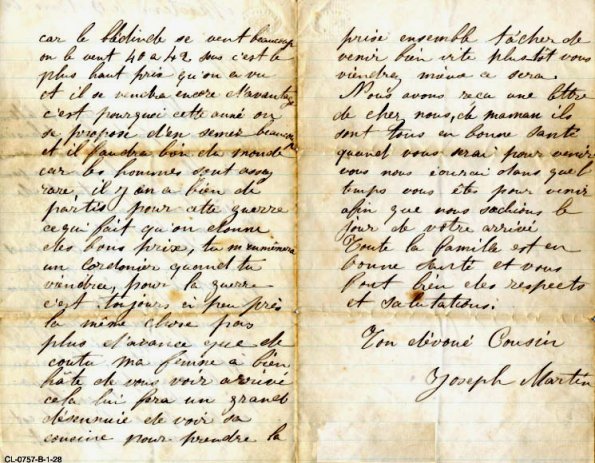 car le bledinde se vent beaucoup
on le vent 40 a 42 sous c'est le
plus haut prix qu'on a vu
et il se vendra encore d'avantage
c'est pourquoi cette anné on
se propose d'en semer beaucoup
et il faudra bien du monde
car les hommes sont assez
rare il y en a bien de
partis pour cette guerre
ce qui fait qu'on donne
des bons prix, tu m'enmènera
un Cordonier quand tu
viendra, pour la guerre
c'est toujours a peu près
la même chose pas
plus d'avance que de
coutu ma femme a bien
hâte de vous voir arrivé
cela lui fera un grand
désennuie de voir sa
cousine pour prendre la
prise ensemble tâcher de
venir bien vite plustôt vous
viendrez mieux ce sera.
Nous avons reçu une lettre
de chez nous, de maman ils
sont tous en bonne santé
quand vous serai pour venir
vous nous écrirai dans quel
temps vous êtes pour venir
afin que nous sachions le
jour de votre arrivé
Toute la famille est en
bonne santé et vous
font bien des respects
et salutations.
Ton dévoué Cousin
Joseph Martin
CL-0757-B-1-28